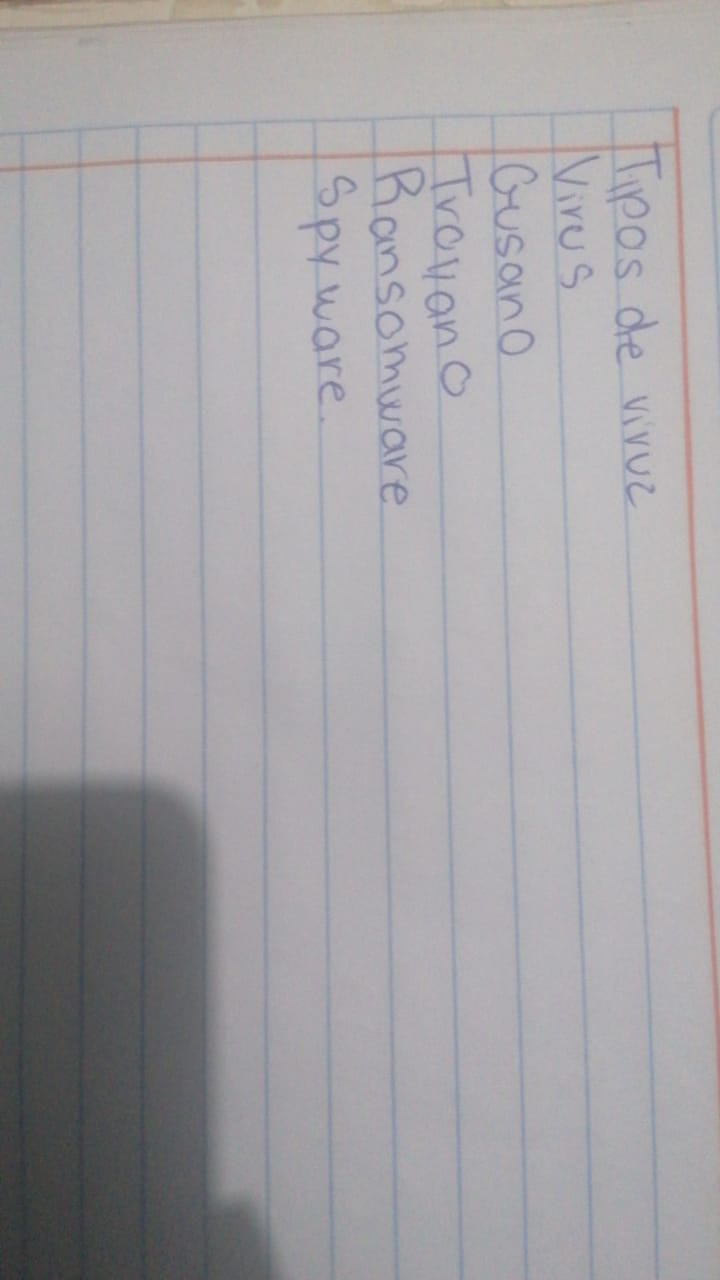 Tipos de viruz
Virus
Gusano
Troyano
Ransomware
Spyware.